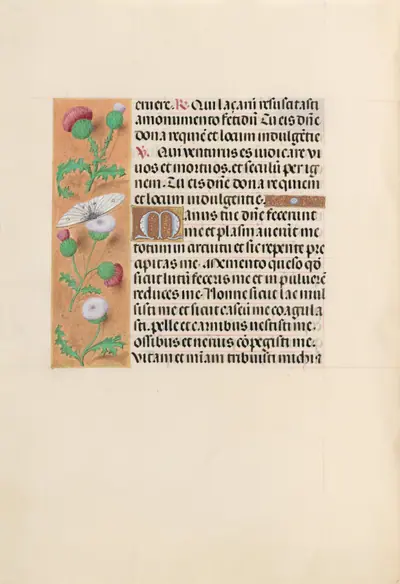 eniere. R. Qui lazarū resuscitasti
a monumento fetidū. Tu eis dn̄e
dona requiē et locum indulgētie
V. Qui venturus es iudicare vi
uos et mortuos, et seculū per ig
nem. Tu eis dn̄e dona requiem
et locum indulgentie.
Manus tue dn̄e fecerunt
me et plasmauerūt me
totum in circuitu et sic repente pre
cipitas me. Memento queso qɔ̄
sicut lutū feceris me et in puluerē
reduces me. Nonne sicut lac mul
sisti me et sicut caseū me coagula
sti. pelle et carnibus uestisti me.
ossibus et neruis cōpegisti me.
vitam et miām tribuisti michi